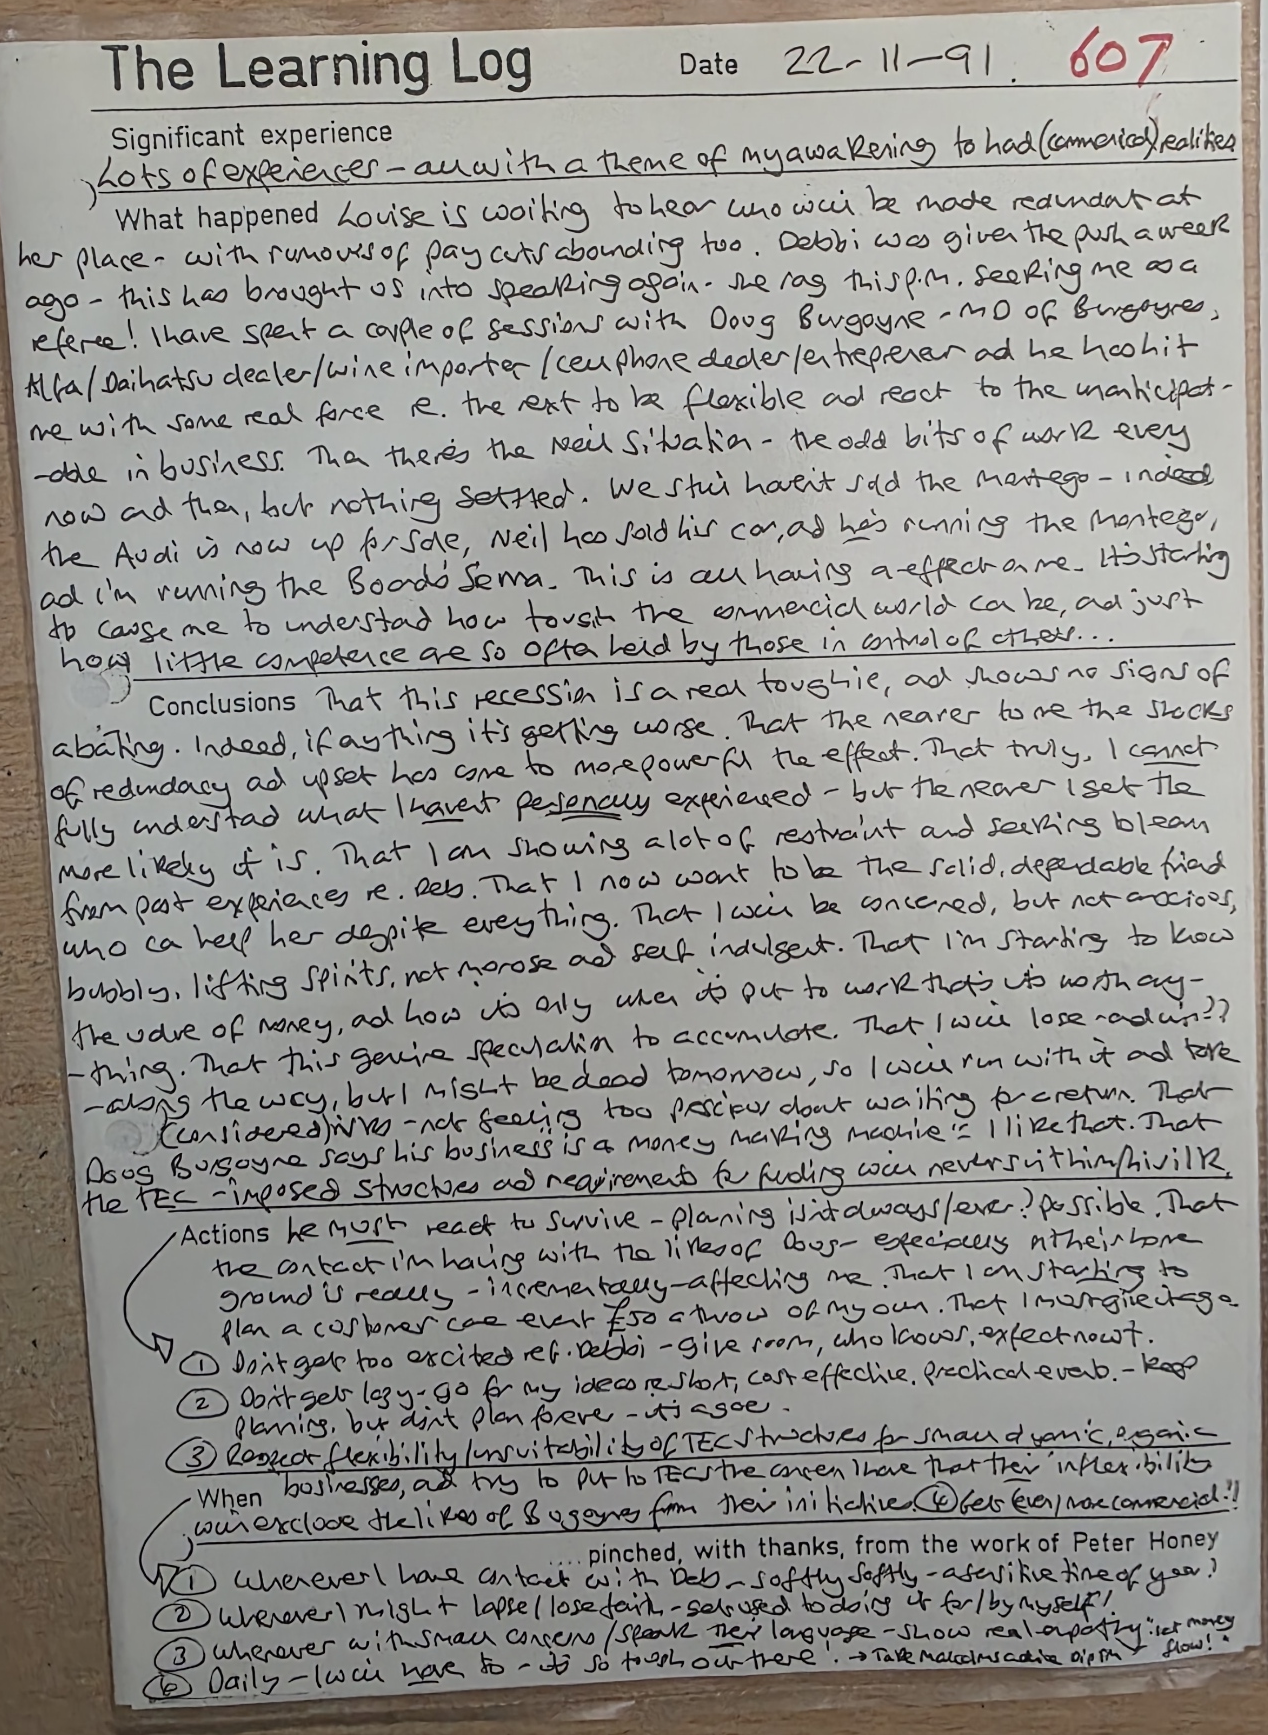 The Learning Log Date 22-11-91. 607
Significant experience
Lots of experiences - all with a theme of my awakening to hard (commerical) realities
What happened Louise is waiting to hear who will be made redundant at
her place - with rumours of pay cuts abounding too. Debbi was given the push a week
ago - this has brought us into speaking again - she rag this p.m. seeking me as a
referee! I have spent a couple of sessions with Doug Burgoyne - MD of Burgoynes,
Alfa/Daihatsu dealer/wine importer/cell phone dealer/entrepreneur ad he has hit
me with some real force re. the to be flexible ad react to the unanticipat-
-able in business. Then there's the Neil Situation - the odd bits of work every
now and then, but nothing settled. We still haven't sold the Montego - indeed
the Audi is now up for sale, Neil has sold his car, ad he's running the Montego,
ad I'm running the Board's Sierra. This is all having a effect on me. It's starting
to cause me to understad how tough the commercial world ca be, ad just
how little competence are so often held by those in control of others...
Conclusions That this recession is a real toughie, ad shows no signs of
abating. Indeed, if anything it's getting worse. That the nearer to me the shocks
of redundacy ad upset has come to more powerful the effect. That truly, I cannot
fully understad what I havent personally experienced - but the nearer I get the
more likely it is. That I am showing a lot of restraint and seeking to learn
from past experiences re. Deb. That I now want to be the solid, dependable friend
who ca help her despite everything. That I will be concerned, but not anxious,
bubbly, lifting spirits, not morose ad self indulgent. That I'm starting to know
the value of money, ad how its only when it's put to work that's its worth any-
-thing. That this genuine speculation to accumulate. That I will lose - ad win??
- along the way, but I might be dead tomorrow, so I will run with it ad take
(considered) risks - not feeling too precious about waiting for a return. That
Doug Burgoyne says his business is a "money making machine" - I like that. That
the TEC - imposed structures ad requirements for funding will never suit him/his ilk,
Actions he must react to survive - planning isn't always/ever? possible. That
the contact I'm having with the likes of Doug - especially on their home
ground is really - incrementally - affecting me. That I am starting to
plan a customer care event £50 a throw of my own. That I must give it a go
① Don't get too excited ref. Debbi - give room, who knows, expect nowt.
② Don't get lazy - go for my ideas re short, cost effective, practical events. - keep
planning, but don't plan forever - it's a goer.
③ Respect flexibility/unsuitability of TEC structures for small dynamic, organic
businesses, ad try to put to TECs the concern I have that their inflexibility
When will exclude the likes of Burgoynes from their initiatives. ④ Get (even) more commercial!!
.... pinched, with thanks, from the work of Peter Honey
① Whenever I have contact with Deb - softly softly - a sensitive time of year!
② Whenever I might lapse/lose faith - get used to doing it for/by myself!
③ Whenever with small concerns/speak their language - show real empathy "let money flow!"
Daily - I will have to - it's so tough out there! → Take